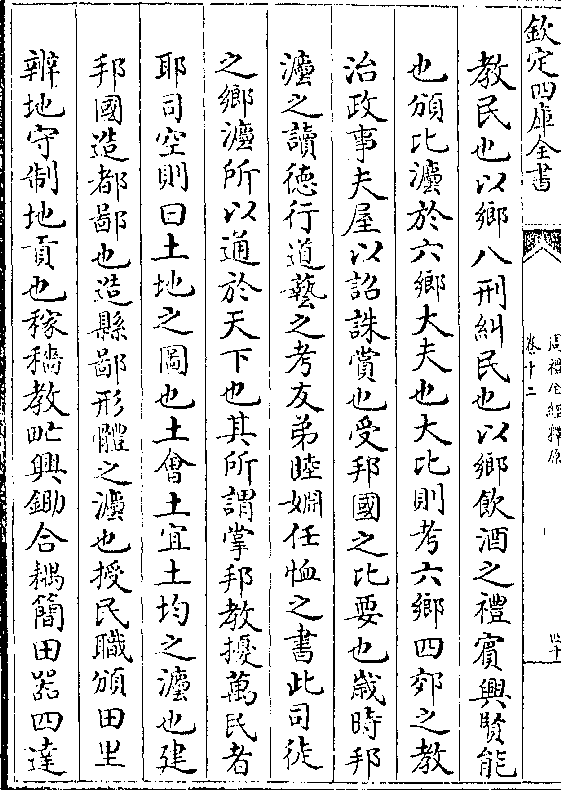 欽定四庫全書
周禮全經釋原
卷十二
四十
教民也以鄉八刑糾民也以鄉飲酒之禮賓興賢能
也頒比灋於六鄉大夫也大比則考六鄉四郊之教
治政事夫屋以詔誅賞也受邦國之比要也歲時邦
灋之讀徳行道藝之考友弟睦婣任恤之書此司徒
之鄉灋所以通於天下也其所謂掌邦教擾萬民者
耶司空則曰土地之圖也土會土宜土均之灋也建
邦國造都鄙也造縣鄙形體之灋也授民職頒田里
辨地守制地貢也稼穡教甿興鋤合耦簡田器四達